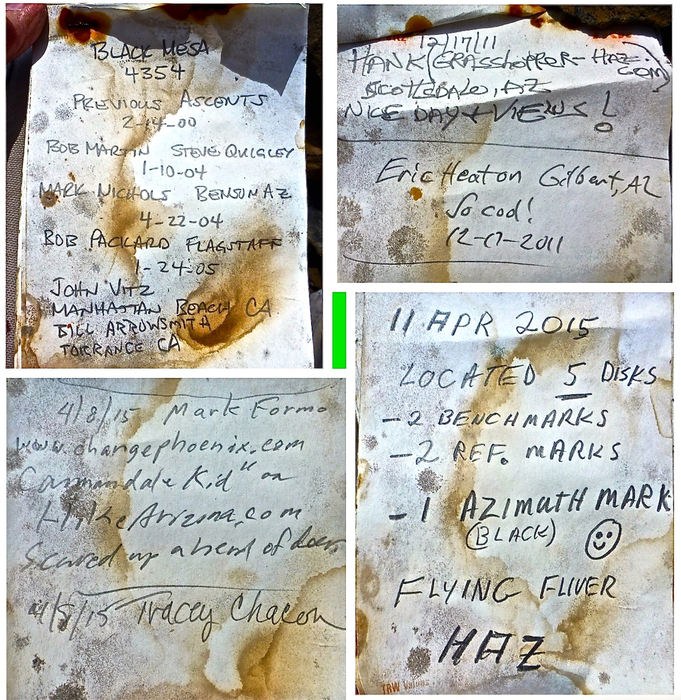 BLACK MESA
4354
PREVIOUS ASCENTS
2-14-00
BOB MARTIN STEVE QUIGLEY
1-10-04
MARK NICHOLS BENSON AZ
4-22-04
BOB PACKARD FLAGSTAFF
1-24-05
JOHN VITZ
MANHATTAN BEACH CA
BILL ARROWSMITH
TORRANCE CA
12/17/11
HANK (GRASSHOPPER - HAZ.
COM)
SCOTTSDALE, AZ
NICE DAY + VIEWS!
Eric Heaton Gilbert, AZ
So cool!
12-17-2011
4/8/15 Mark Formo
www.changephoenix.com
"Cannondale Kid" on
HikeArizona.com
Scared up a herd of deer
4/8/15 Tracey Chacon
11 APR 2015
LOCATED 5 DISKS
-2 BENCHMARKS
-2 REF. MARKS
-1 AZIMUTH MARK
(BLACK)
FLYING FLIVER
HAZ